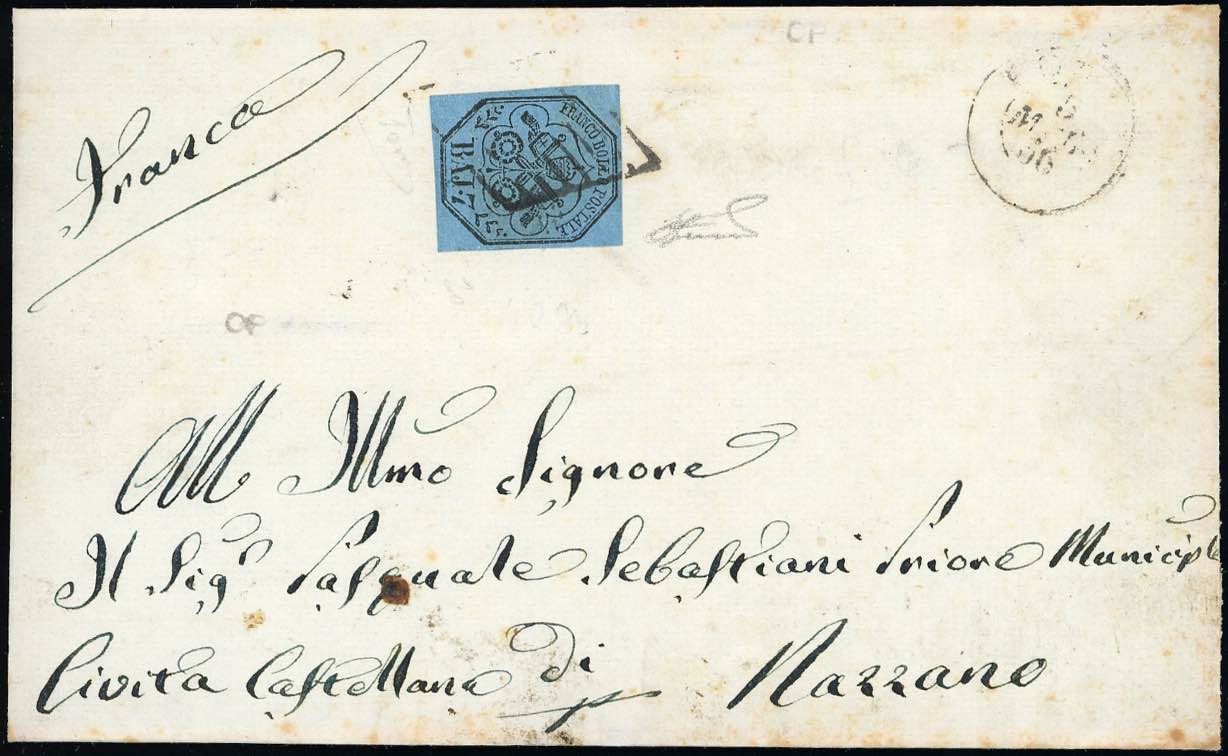 Franca
FRANCO BOLLO POSTALE
BAJ 7
56
OP
OP
All Illmo Signore
Il Sigr Pasquale Sebastiani Priore Municiple
Civita Castellana di Nazzano